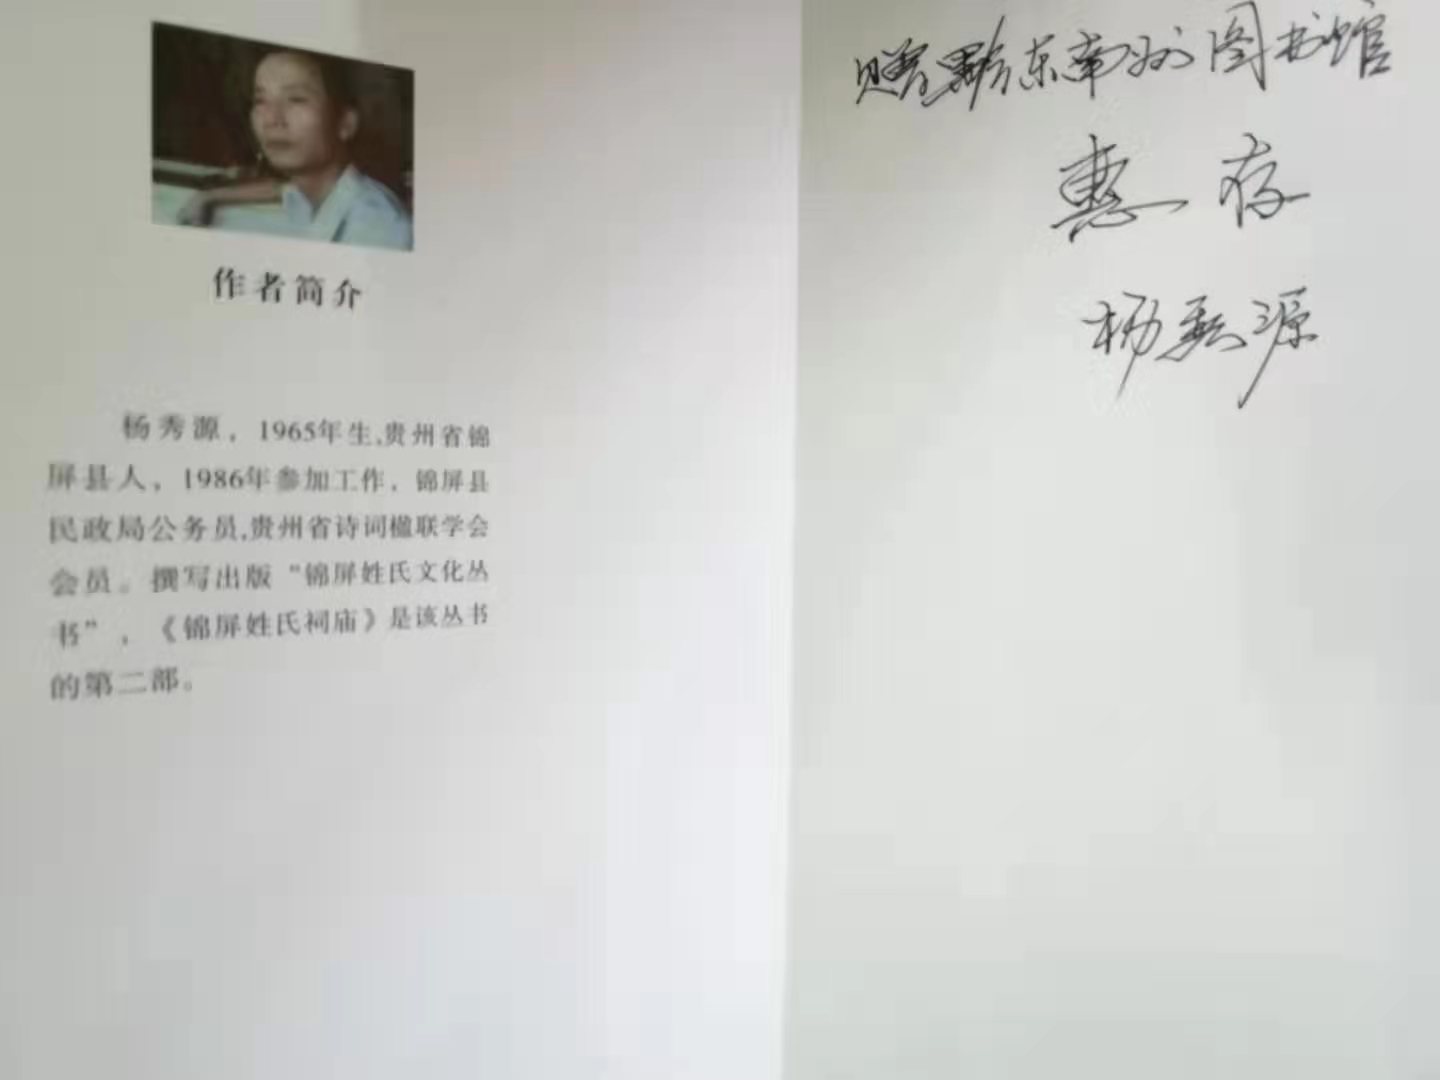 作者简介
杨秀源，1965年生,贵州省锦
屏县人，1986年参加工作，锦屏县
民政局公务员,贵州省诗词楹联学会
会员。撰写出版“锦屏姓氏文化丛
书”，《锦屏姓氏祠庙》是该丛书
的第二部。
赠黔东南州图书馆
惠存
杨秀源